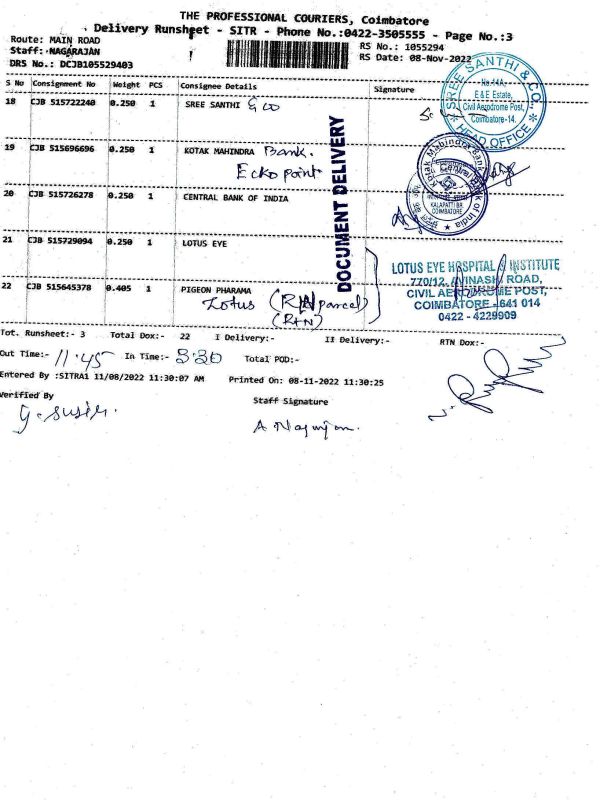 THE PROFESSIONAL COURIERS, Coimbatore
Delivery Runsheet - SITR - Phone No.:0422-3505555 - Page No.:3
Route: MAIN ROAD
Staff: NAGARAJAN
DRS No.: DCJB105529403
RS No.: 1055294
RS Date: 08-Nov-2022
S No Consignment No Weight PCS Consignee Details Signature
18 CJB 515722240 0.250 1 SREE SANTHI & CO
SREE SANTHI & CO.
No.14A,
E&E Estate,
Civil Aerodrome Post,
Coimbatore-14.
HEAD OFFICE
19 CJB 515696696 0.250 1 KOTAK MAHINDRA Bank.
Ecko point
Kotak Mahindra Bank
DOCUMENT DELIVERY
20 CJB 515726278 0.250 1 CENTRAL BANK OF INDIA
Central Bank of India
KALAPATTI BR.
COIMBATORE
21 CJB 515729094 0.250 1 LOTUS EYE
22 CJB 515645378 0.405 1 PIGEON PHARAMA
Lotus (RTN parcel)
(RTN)
LOTUS EYE HOSPITAL & INSTITUTE
770/12, AVINASHI ROAD,
CIVIL AERODROME POST,
COIMBATORE - 641 014
0422 - 4229909
Tot. Runsheet:- 3 Total Dox:- 22 I Delivery:- II Delivery:- RTN Dox:-
Out Time:- 11.45 In Time:- 3.30 Total POD:-
Entered By :SITRA1 11/08/2022 11:30:07 AM Printed On: 08-11-2022 11:30:25
Verified By
Staff Signature
A Nagarajan.